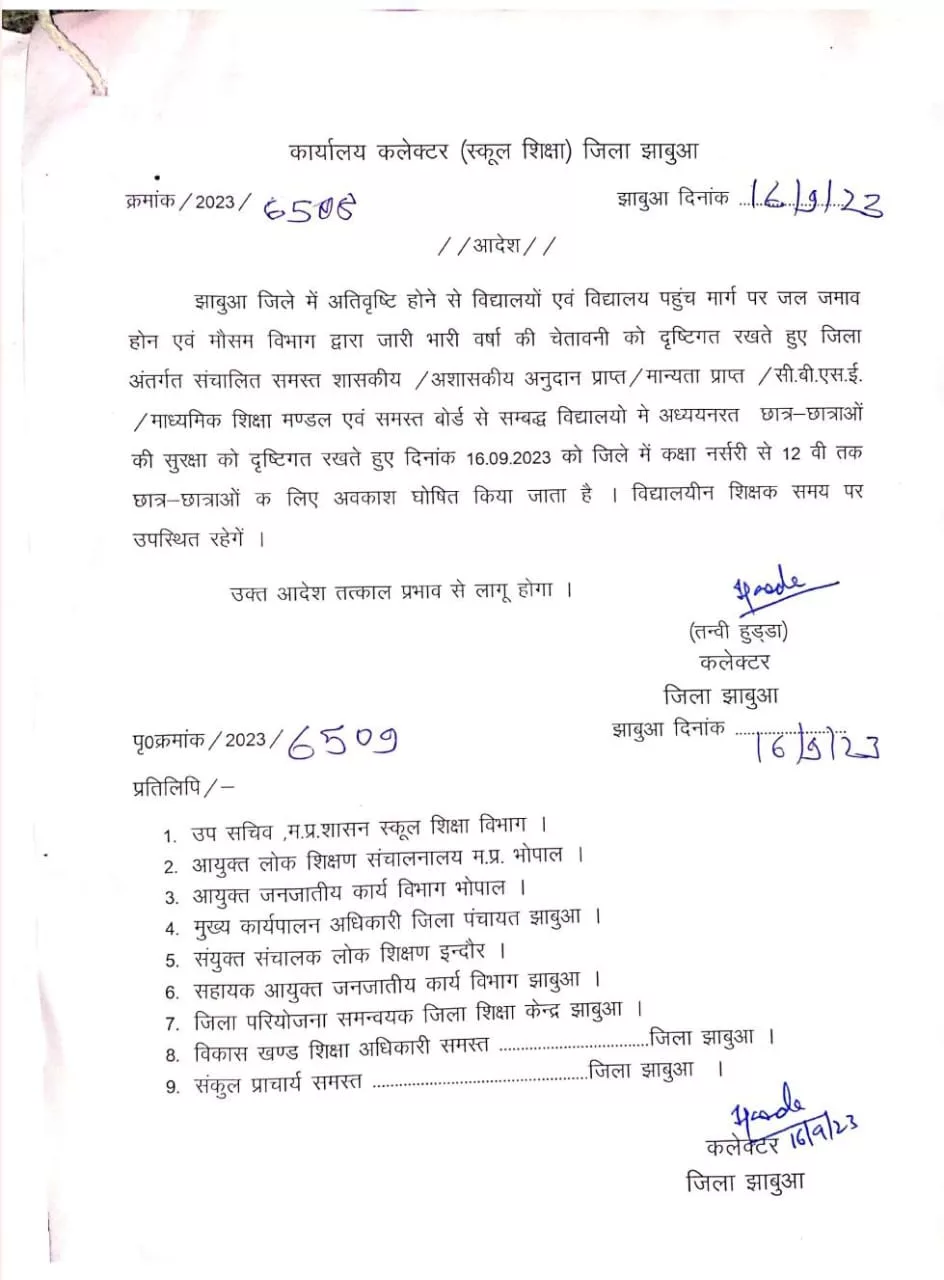 कार्यालय कलेक्टर (स्कूल शिक्षा) जिला झाबुआ
क्रमांक / 2023 / 6508 झाबुआ दिनांक ....16/9/23
/ /आदेश/ /
झाबुआ जिले में अतिवृष्टि होने से विद्यालयों एवं विद्यालय पहुंच मार्ग पर जल जमाव
होन एवं मौसम विभाग द्वारा जारी भारी वर्षा की चेतावनी को दृष्टिगत रखते हुए जिला
अंतर्गत संचालित समस्त शासकीय /अशासकीय अनुदान प्राप्त/मान्यता प्राप्त /सी.बी.एस.ई.
/माध्यमिक शिक्षा मण्डल एवं समस्त बोर्ड से सम्बद्ध विद्यालयो मे अध्ययनरत छात्र–छात्राओं
की सुरक्षा को दृष्टिगत रखते हुए दिनांक 16.09.2023 को जिले में कक्षा नर्सरी से 12 वी तक
छात्र–छात्राओं क लिए अवकाश घोषित किया जाता है । विद्यालयीन शिक्षक समय पर
उपस्थित रहेगें ।
उक्त आदेश तत्काल प्रभाव से लागू होगा ।
(तन्वी हुड्डा)
कलेक्टर
जिला झाबुआ
पृ0क्रमांक / 2023 / 6509 झाबुआ दिनांक ........................ 16/9/23
प्रतिलिपि /–
1. उप सचिव ,म.प्र.शासन स्कूल शिक्षा विभाग ।
2. आयुक्त लोक शिक्षण संचालनालय म.प्र. भोपाल ।
3. आयुक्त जनजातीय कार्य विभाग भोपाल ।
4. मुख्य कार्यपालन अधिकारी जिला पंचायत झाबुआ ।
5. संयुक्त संचालक लोक शिक्षण इन्दौर ।
6. सहायक आयुक्त जनजातीय कार्य विभाग झाबुआ ।
7. जिला परियोजना समन्वयक जिला शिक्षा केन्द्र झाबुआ ।
8. विकास खण्ड शिक्षा अधिकारी समस्त ...................................जिला झाबुआ ।
9. संकुल प्राचार्य समस्त ..................................................जिला झाबुआ ।
कलेक्टर 16/9/23
जिला झाबुआ